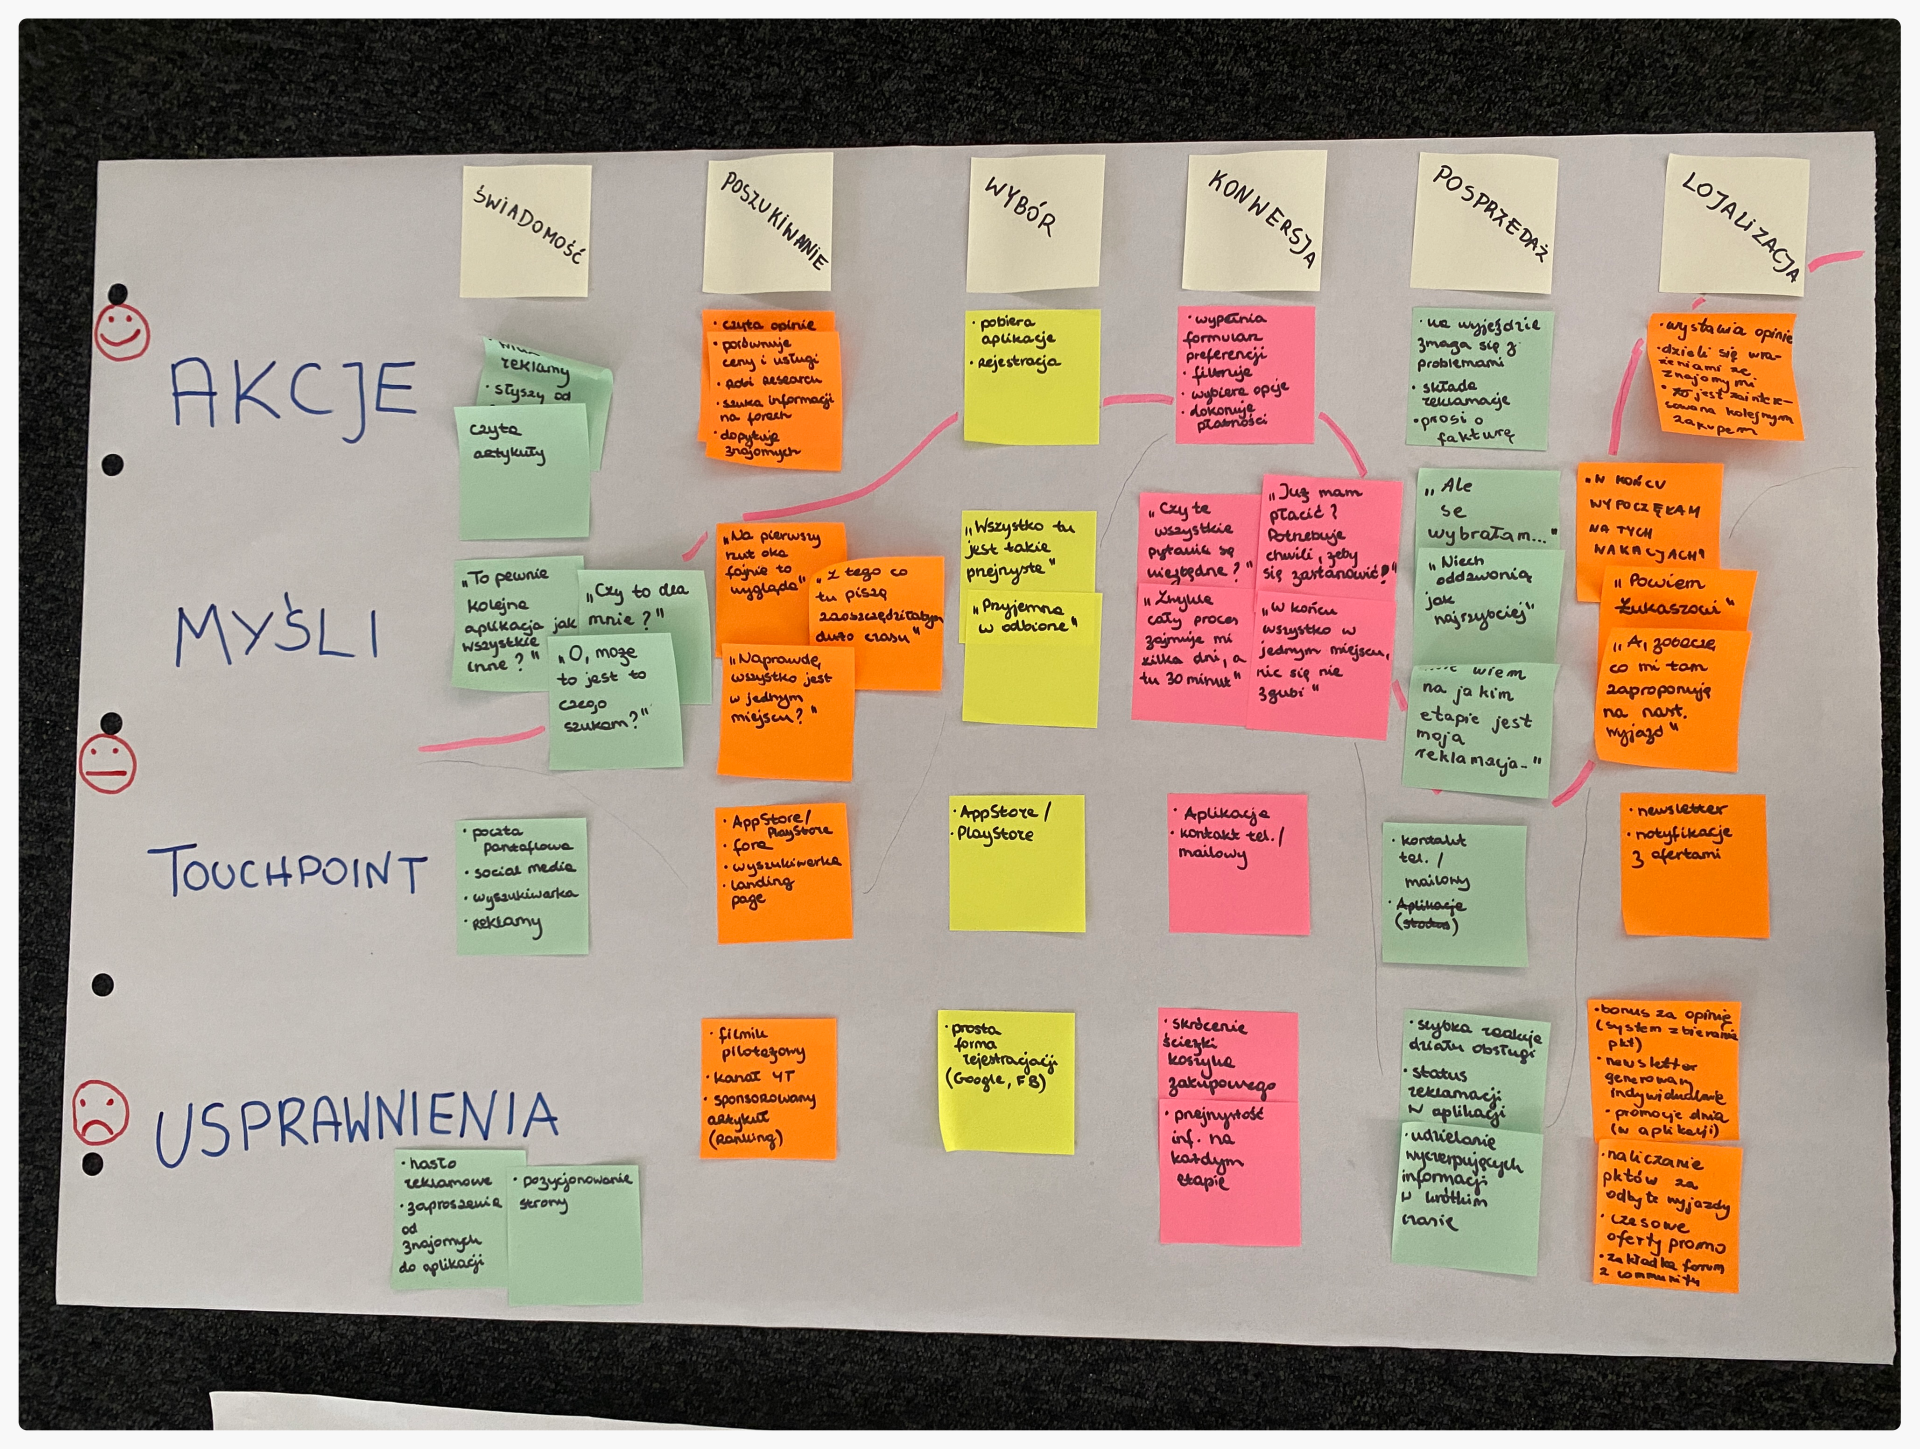 ŚWIADOMOŚĆ
POSZUKIWANIE
WYBÓR
KONWERSJA
POSPRZEDAŻ
LOJALIZACJA
AKCJE
reklamy
• słyszy od
czyta
artykuły
• czyta opinie
• porównuje
ceny i usługi
• robi research
• szuka informacji
na forach
• dopytuje
znajomych
• pobiera
aplikacje
• rejestracja
• wypełnia
formularz
preferencji
• filtruje
• wybiera opcje
• dokonuje
płatności
• na wyjeździe
zmaga się z
problemami
• składa
reklamacje
• prosi o
fakturę
• wystawia opinie
• dzieli się wra-
żeniami ze
znajomymi
• jest zaintere-
sowana kolejnym
zakupem
MYŚLI
„To pewnie
kolejna
aplikacja jak
wszystkie
inne?"
„Czy to dla
mnie?"
„O, może
to jest to
czego
szukam?"
„Na pierwszy
rzut oka
fajnie to
wygląda"
„Z tego co
tu piszą
zaoszczędziłabym
dużo czasu"
„Naprawdę,
wszystko jest
w jednym
miejscu?"
„Wszystko tu
jest takie
przejrzyste"
„Przyjemna
w odbiorze"
„Czy te
wszystkie
pytania są
niezbędne?"
„Już mam
płacić?
Potrzebuje
chwili, żeby
się zastanowić!"
„Zwykle
cały proces
zajmuje mi
kilka dni, a
tu 30 minut"
„W końcu
wszystko w
jednym miejscu,
nic się nie
zgubi"
„Ale
se
wybrałam..."
„Niech
oddzwonią
jak
najszybciej"
wiem
na jakim
etapie jest
moja
reklamacja..."
„W KOŃCU
WYPOCZĘŁAM
NA TYCH
WAKACJACH"
„Powiem
Łukaszowi"
„A, zobaczę
co mi tam
zaproponują
na nast.
wyjazd"
TOUCHPOINT
• poczta
pantoflowa
• social media
• wyszukiwarka
• reklamy
• AppStore/
PlayStore
• fora
• wyszukiwarka
• landing
page
• AppStore/
• PlayStore
• Aplikacja
• kontakt tel./
mailowy
• kontakt
tel./
mailowy
• Aplikacje
(status)
• newsletter
• notyfikacje
z ofertami
USPRAWNIENIA
• hasło
reklamowe
• zaproszenia
od
znajomych
do aplikacji
• pozycjonowanie
strony
• filmik
pilotażowy
• kanał YT
• sponsorowany
artykuł
(Ranking)
• prosta
forma
rejestracji
(Google, FB)
• skrócenie
ścieżki
koszyka
zakupowego
• przejrzystość
inf. na
każdym
etapie
• szybka reakcja
działu obsługi
• status
reklamacji
w aplikacji
• udzielanie
wyczerpujących
informacji
w krótkim
czasie
• bonus za opinię
(system zbierania
pkt)
• newsletter
generowany
indywidualnie
• promocje dnia
(w aplikacji)
• naliczanie
pktów za
odbyte wyjazdy
• czasowe
oferty promo
• zakładka forum
z community